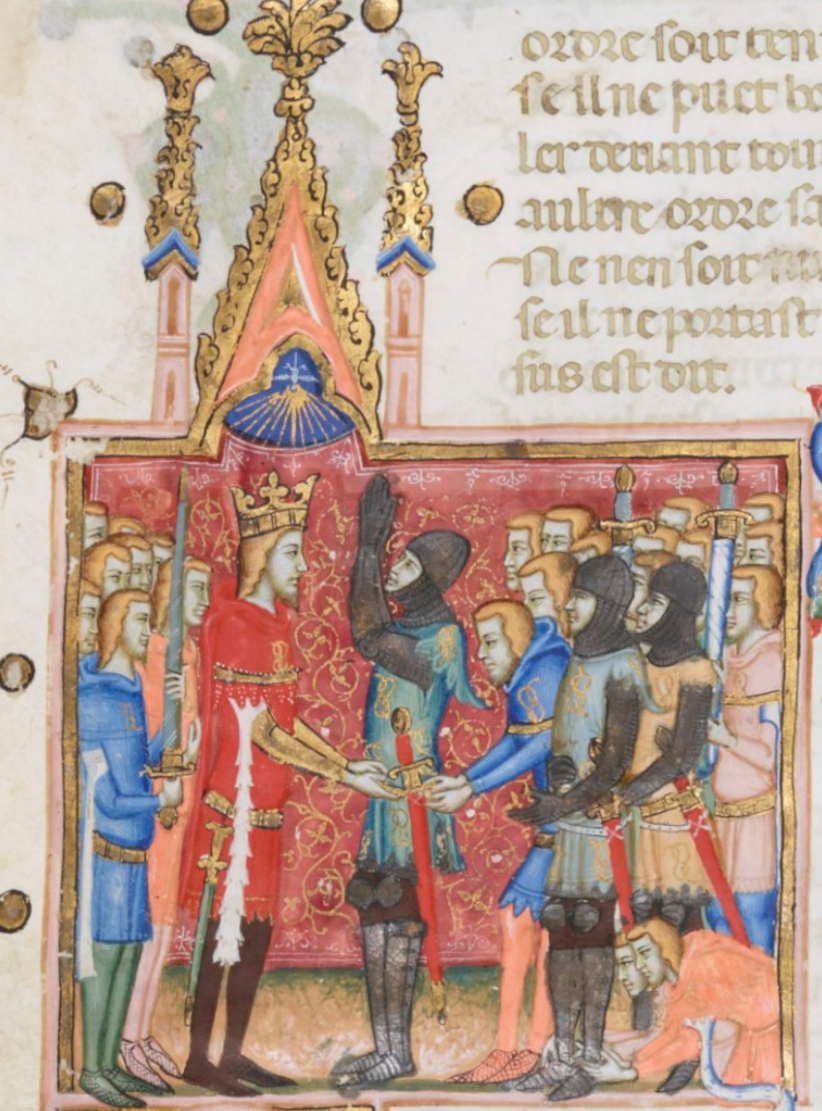 ordre soit ten
se il ne puet bo
ler devant tou
aultre ordre sa
Ne nen soit
se il ne portast
sus est dit.